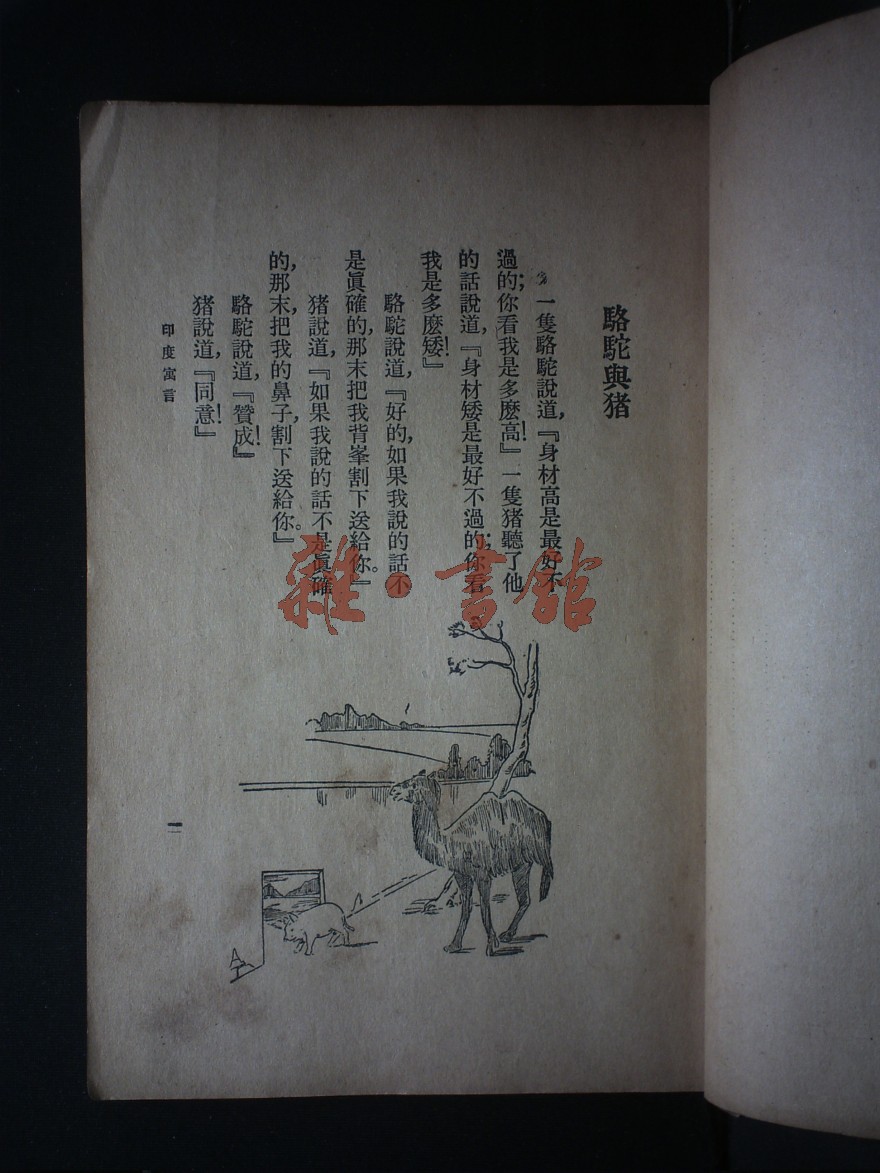 駱駝與猪
一隻駱駝說道,『身材高是最好不
過的;你看我是多麽高!』一隻猪聽了他
的話說道,『身材矮是最好不過的;你看
我是多麽矮!』
駱駝說道,『好的,如果我說的話不
是眞確的,那末把我背峯割下送給你。』
猪說道,『如果我說的話不是眞確
的,那末把我的鼻子割下送給你。』
駱駝說道,『贊成!』
猪說道,『同意!』
印度寓言
一
雜·書館